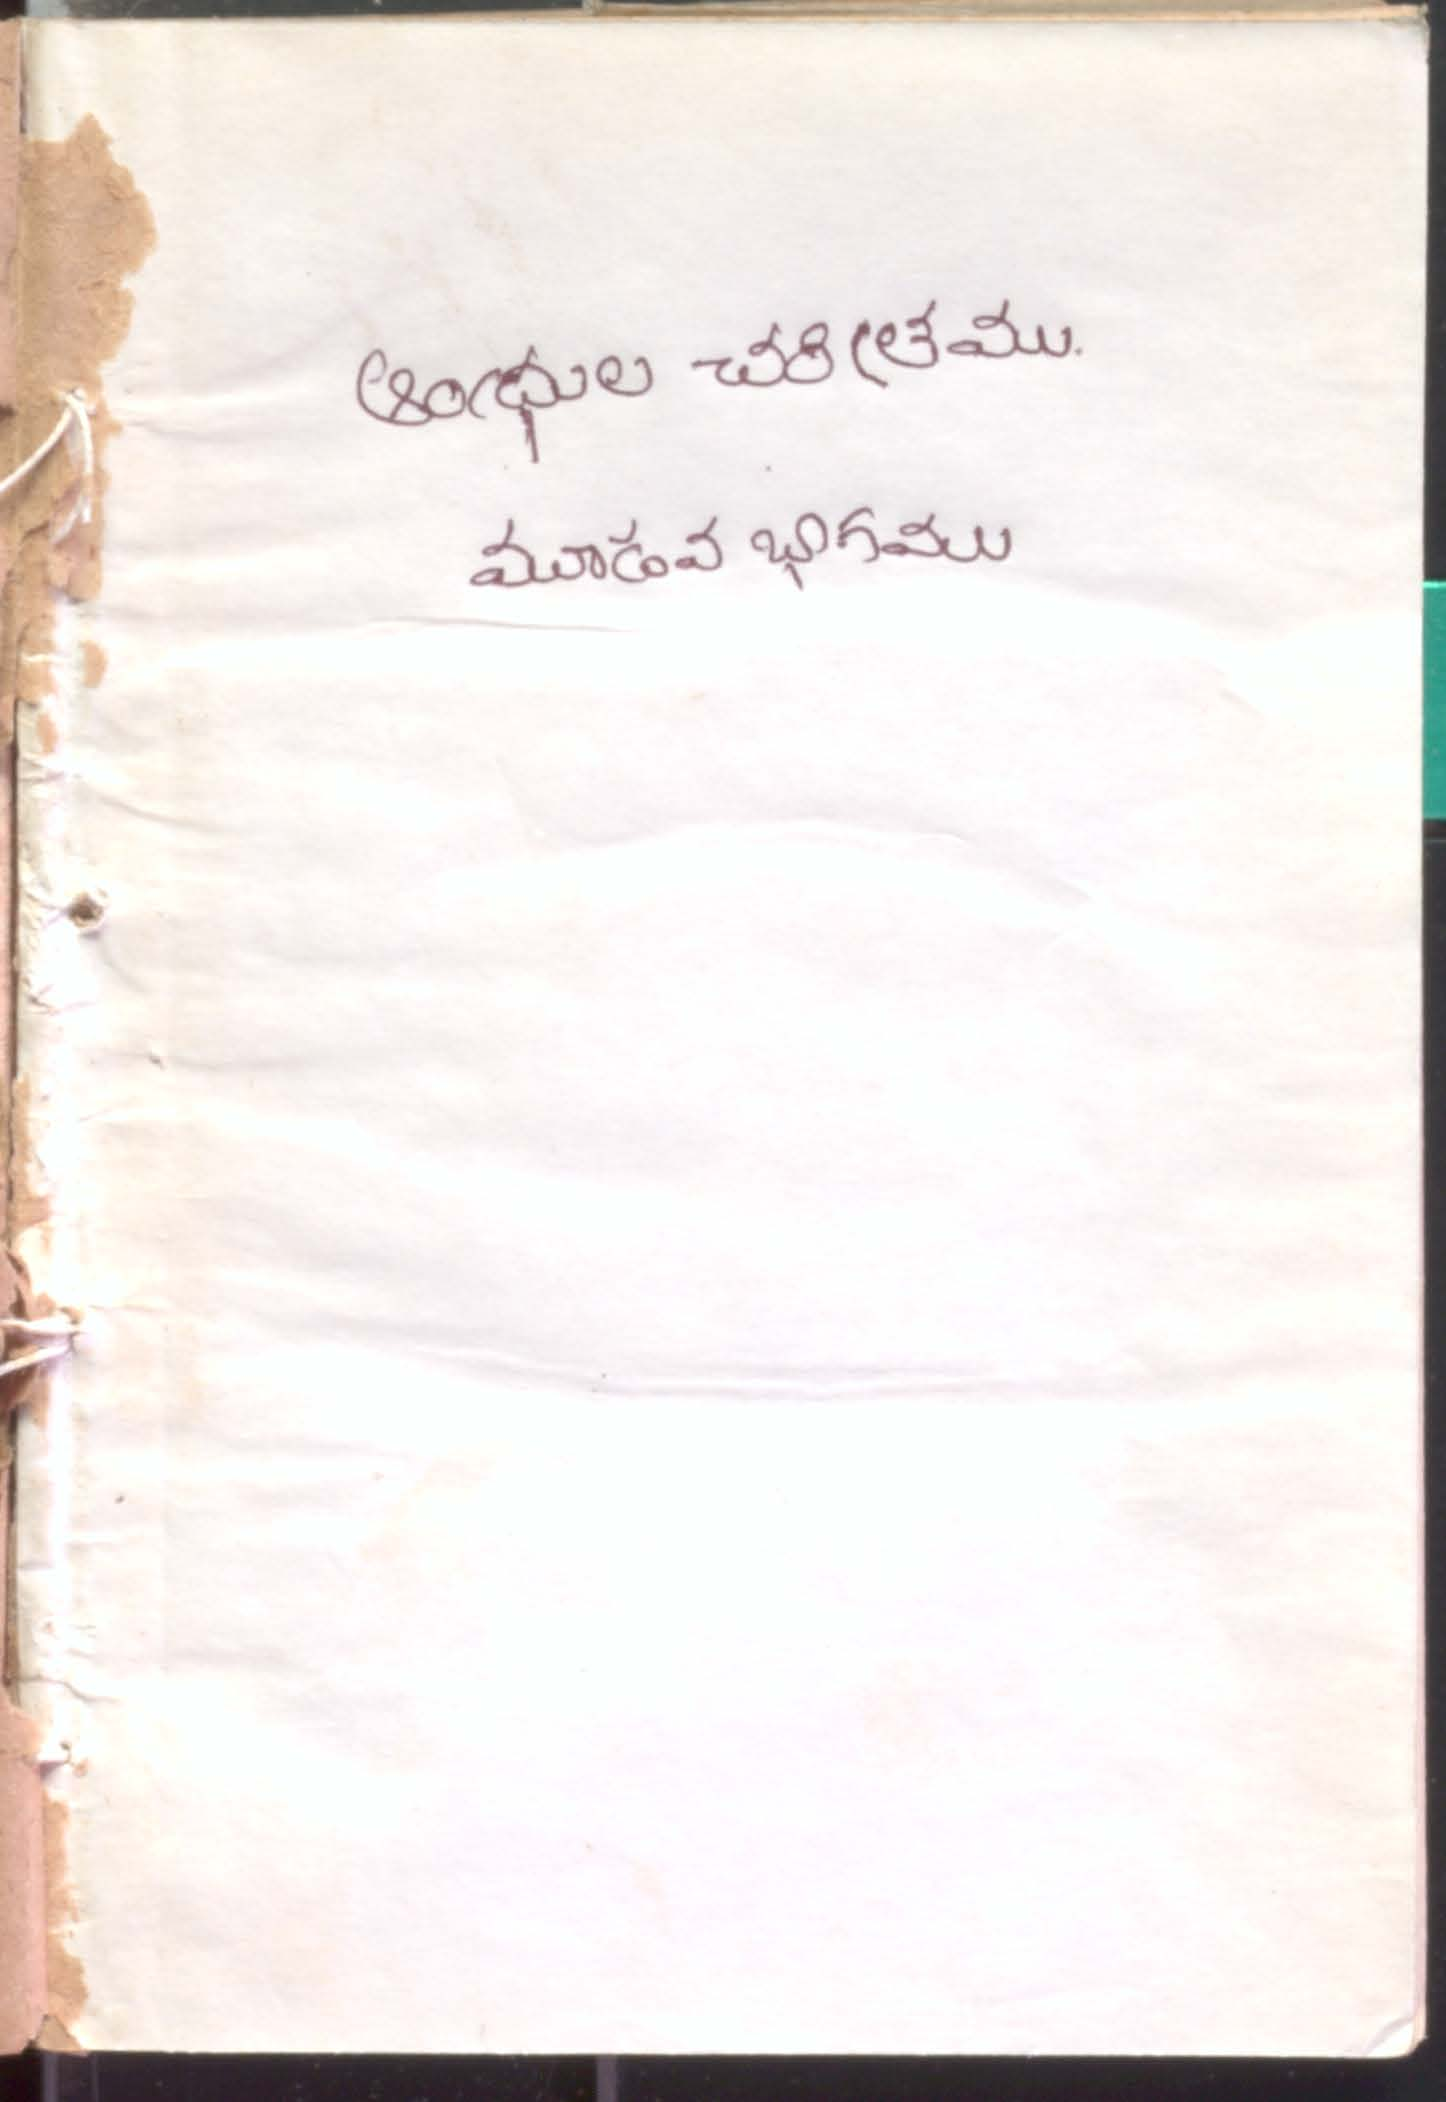 ఆంధ్రుల చరిత్రము.
మూడవ భాగము